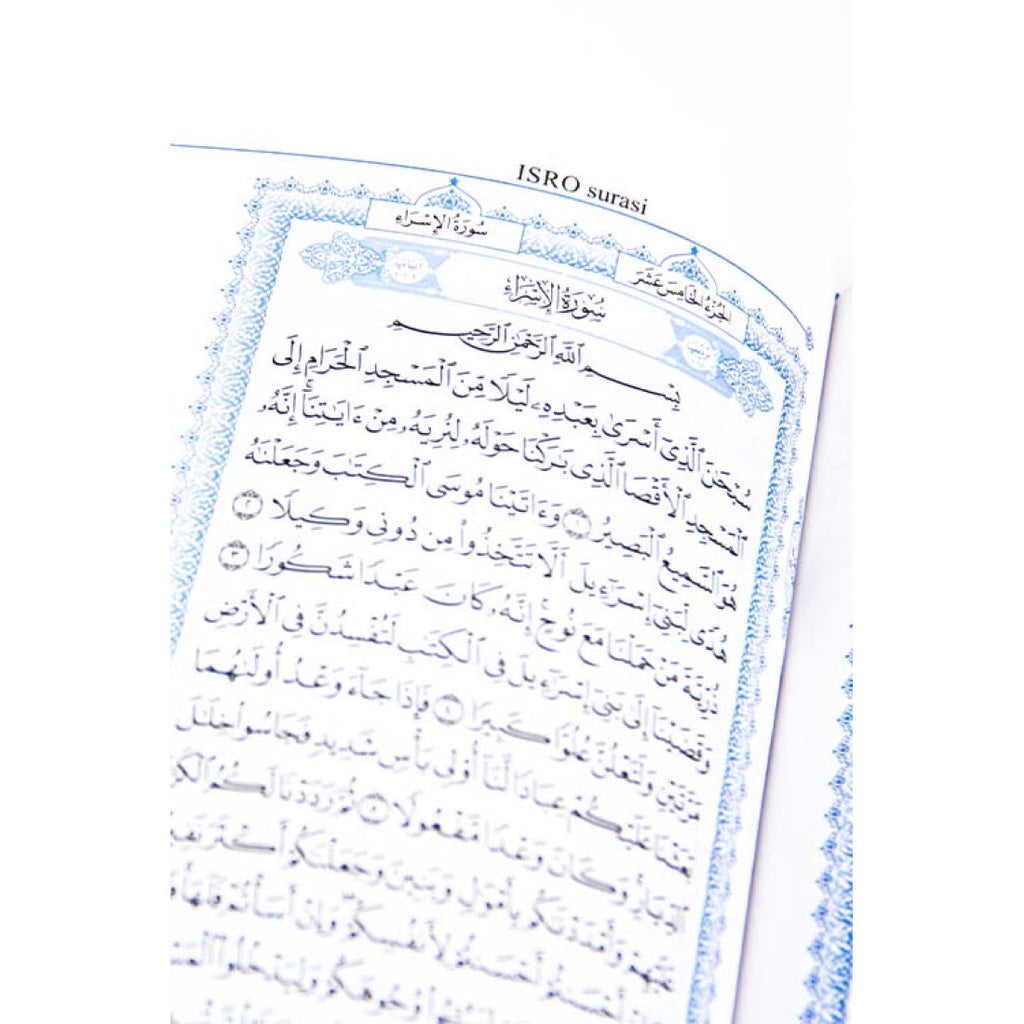 ISRO surasi
سُورَةُ الإِسْرَاءِ
الجُزْءُ الخَامِسَ عَشَرَ
سُورَةُ الإِسْرَاءِ
بِسْمِ ٱللَّهِ ٱلرَّحْمَٰنِ ٱلرَّحِيمِ
سُبْحَٰنَ ٱلَّذِىٓ أَسْرَىٰ بِعَبْدِهِۦ لَيْلًا مِّنَ ٱلْمَسْجِدِ ٱلْحَرَامِ إِلَى
ٱلْمَسْجِدِ ٱلْأَقْصَا ٱلَّذِى بَٰرَكْنَا حَوْلَهُۥ لِنُرِيَهُۥ مِنْ ءَايَٰتِنَآ ۚ إِنَّهُۥ
هُوَ ٱلسَّمِيعُ ٱلْبَصِيرُ ١ وَءَاتَيْنَا مُوسَى ٱلْكِتَٰبَ وَجَعَلْنَٰهُ
هُدًى لِّبَنِىٓ إِسْرَٰٓءِيلَ أَلَّا تَتَّخِذُوا۟ مِن دُونِى وَكِيلًا ٢
ذُرِّيَّةَ مَنْ حَمَلْنَا مَعَ نُوحٍ ۚ إِنَّهُۥ كَانَ عَبْدًا شَكُورًا ٣
وَقَضَيْنَآ إِلَىٰ بَنِىٓ إِسْرَٰٓءِيلَ فِى ٱلْكِتَٰبِ لَتُفْسِدُنَّ فِى ٱلْأَرْضِ
مَرَّتَيْنِ وَلَتَعْلُنَّ عُلُوًّا كَبِيرًا ٤ فَإِذَا جَآءَ وَعْدُ أُولَىٰهُمَا
بَعَثْنَا عَلَيْكُمْ عِبَادًا لَّنَآ أُو۟لِى بَأْسٍ شَدِيدٍ فَجَاسُوا۟ خِلَٰلَ
ٱلدِّيَارِ ۚ وَكَانَ وَعْدًا مَّفْعُولًا ٥ ثُمَّ رَدَدْنَا لَكُمُ
عَلَيْهِمْ وَأَمْدَدْنَٰكُم بِأَمْوَٰلٍ وَبَنِينَ وَجَعَلْنَٰكُمْ أَكْثَرَ
أَحْسَنتُمْ أَحْسَنتُمْ لِأَنفُسِكُمْ ۖ وَإِنْ أَسَأْتُمْ فَلَهَا
وُجُوهَكُمْ وَلِيَدْخُلُوا۟